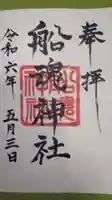 奉拝
船魂神社
令和六年
五月三日